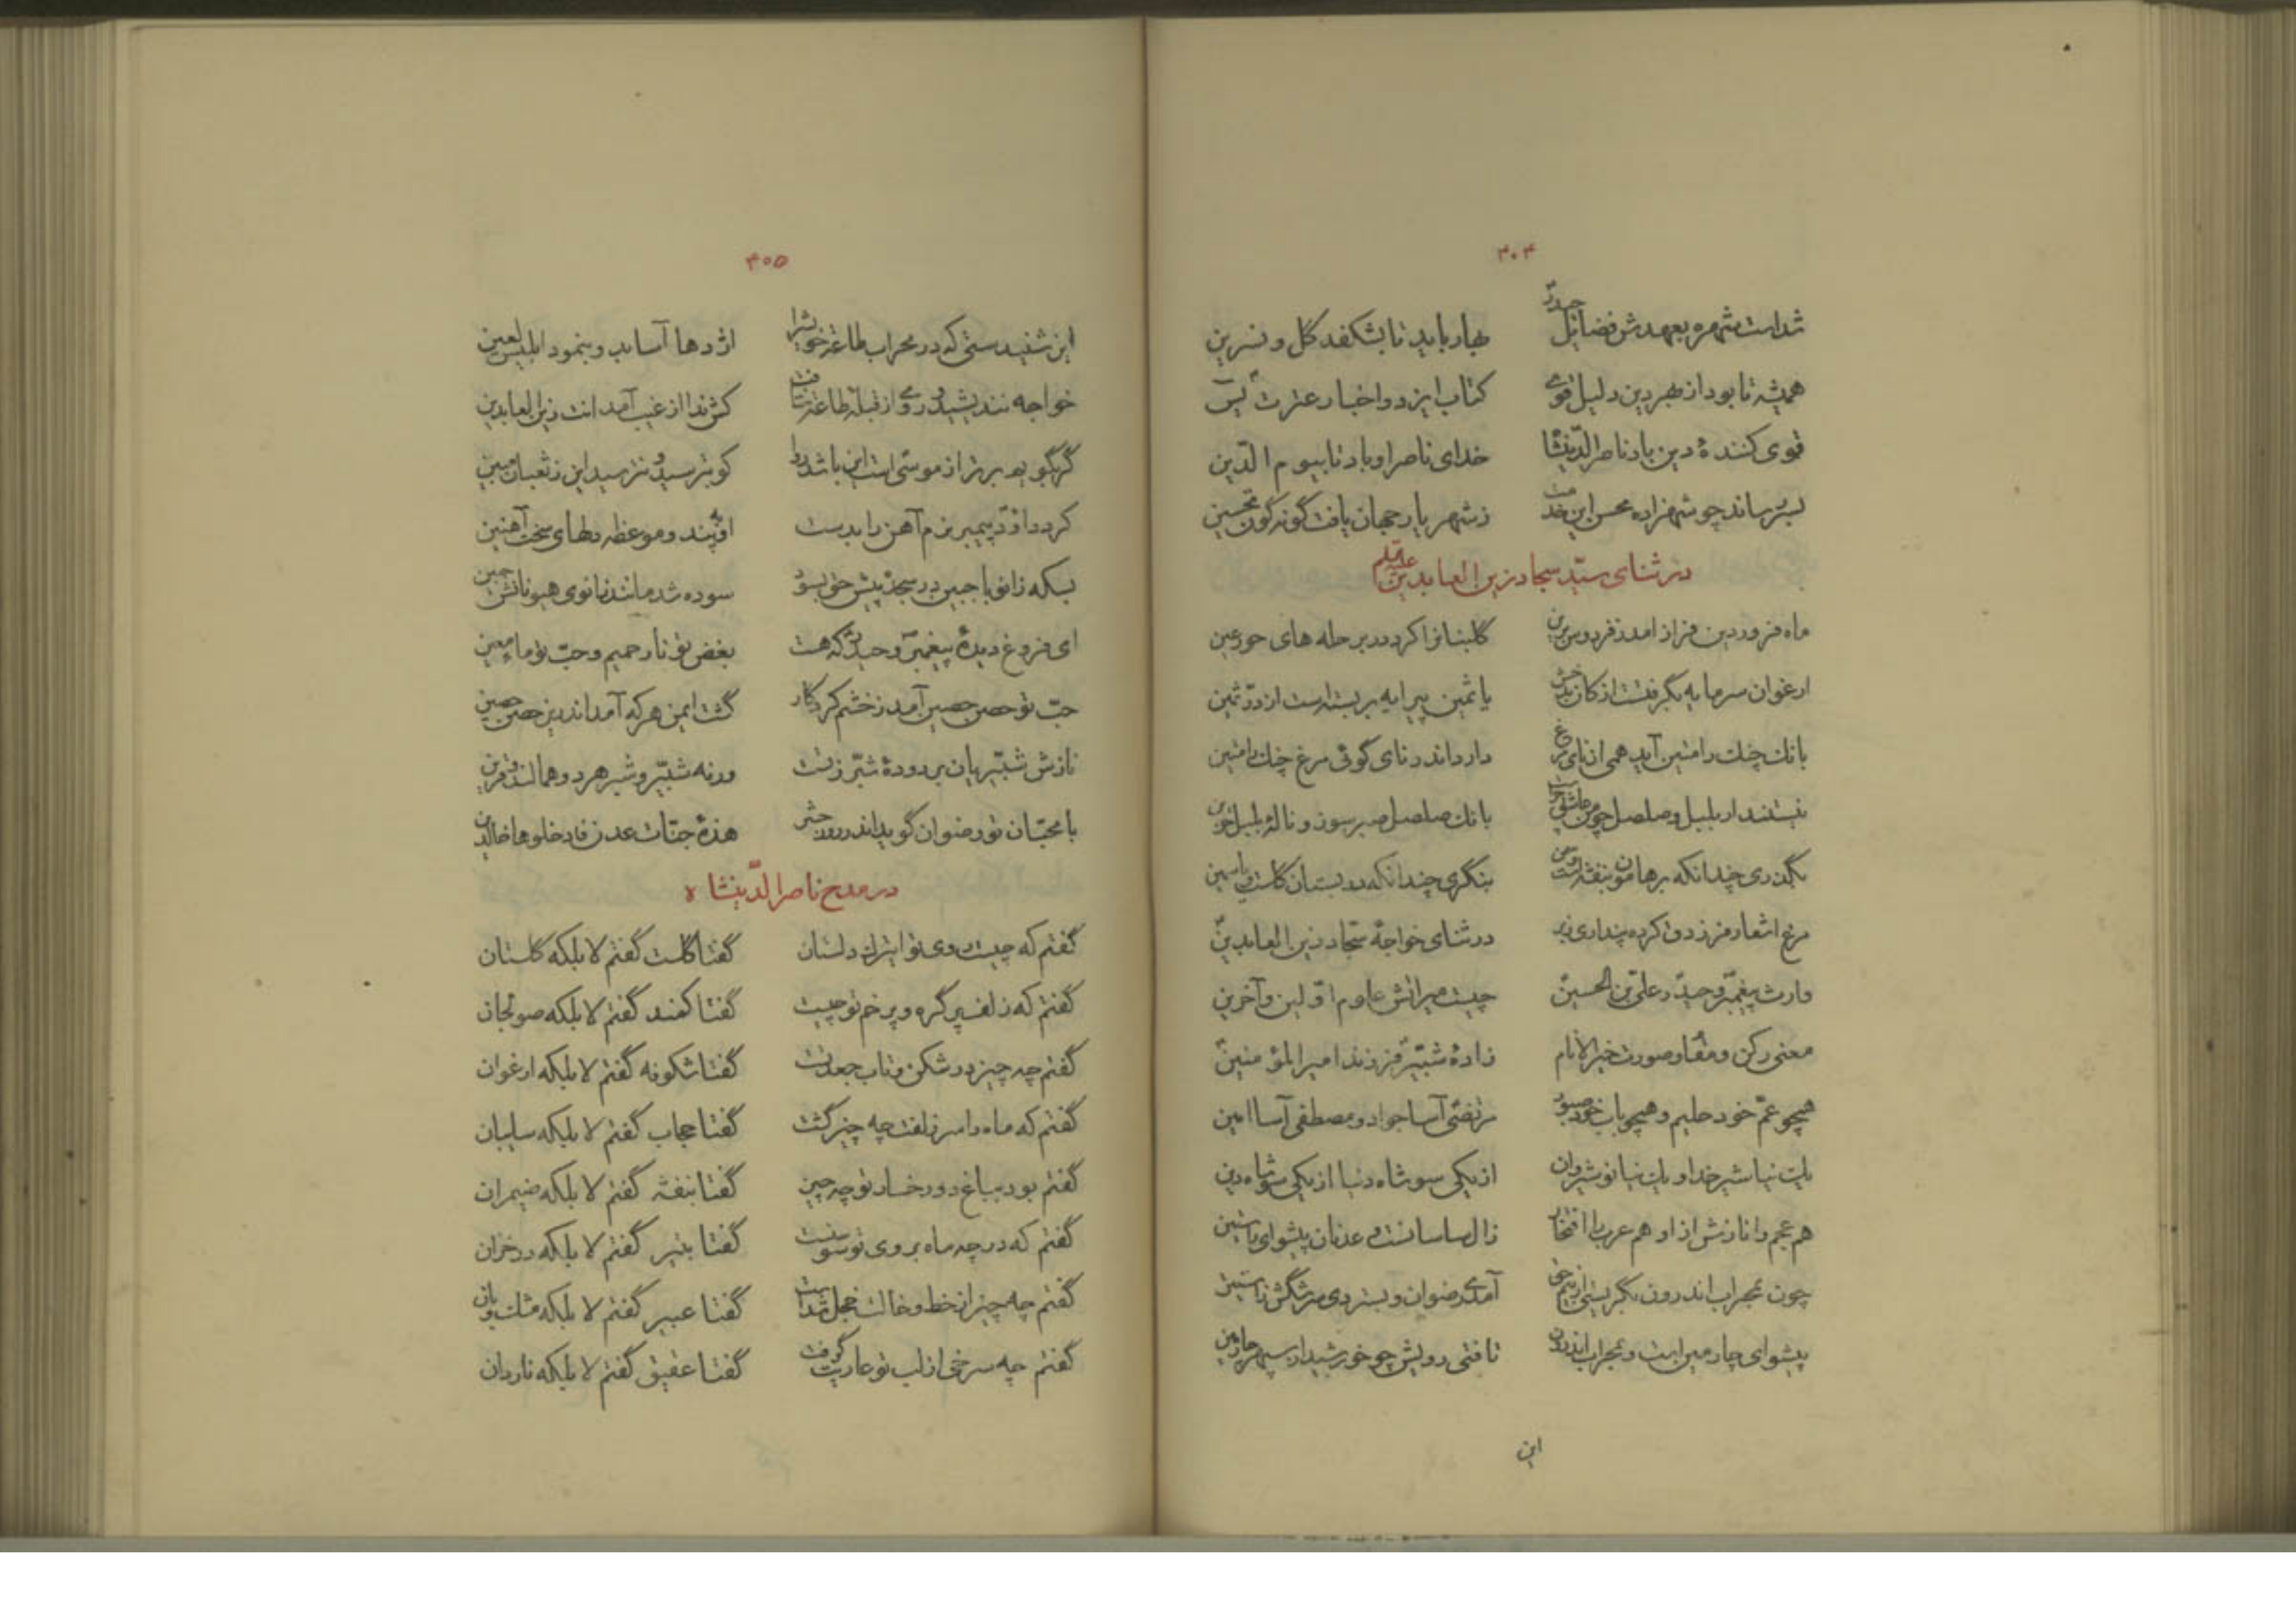 ۴۰۴
شداست شهره بعهدش فضایل حیدر بهار باید تا بشکفد گل و نسرین
همیشه تا بود از بهر دین دلیل قوی کتاب ایزد و اخبار عترت یس
قوی کنندهٔ دین باد ناصرالدینشا خدای ناصر او باد تا بیوم الدین
بسر رساند چو شهزاده محسن این خدمت ز شهریار جهان یافت گونه گون تحسین
در ثنای سید سجاد زین العابدین علیه السلم
ماه فروردین فراز آمد ز فردوس برین گلبنانرا کرد در بر حله های حور عین
ارغوان سرمایه بگرفتست از کان بدخش یاثمین پیرایه بر بسته است از در ثمین
بانک چنک رامتین آید همی از نای مرغ دارد اندر نای گوئی مرغ چنک رامتین
نیستند ار بلبل و صلصل چو من عاشق چراست بانک صلصل صبر سوز و نالهٔ بلبل حزین
بگذری چندانکه بر هامون بنفشه است و سمن بنگری چندانکه در بستان گلست و یاسمین
مرغ اشعار فرزدق کرده پنداری ز بر در ثنای خواجهٔ سجاد زین العابدین
وارث پیغمبر و حیدر علی بن الحسین چیست میراثش علوم اولین و آخرین
معنی رکن و مقام و صورت خیر الانام زادهٔ شبیر فرزند امیر المؤمنین
همچو عم خود حلیم و همچو باب خود صبور مرتضی آسا جواد و مصطفی آسا امین
یک نیا شیر خدا و یک نیا نوشیروان از یکی سو شاه دنیا از یکی سو شاه دین
هم عجم را نازش از او هم عرب را افتخار زال ساسانست و عدنان پیشوای راستین
چون بمحراب اندرون بگریستی از بیم حق آمدی رضوان و بستردی سرشگش ز آستین
پیشوای چارمین است و بمحراب اندرون تافتی رویش چو خورشید از سپهر چارمین
این
۴۰۵
این شنیدستی که در محراب طاعت خویش را اژدها آسا بدو بنمود ابلیس لعین
خواجه نندیشید و روی از قبلهٔ طاعت نتافت کش ندا از غیب آمد انت زین العابدین
گر بگویم برتر از موسی است این باشد روا کو بترسید و نترسید این ز ثعبان مبین
کرد داود پیمبر نرم آهن را بدست او بپند و موعظه دلهای سخت آهنین
بسکه زانو با جبین در سجده پیش حق بسود سوده شد مانند زانوی هیونانش جبین
ای فروغ دیدهٔ پیغمبر و حیدر که هست بغض تو نار حمیم و حب تو ماء معین
حب تو حصن حصین آمد ز خشم کردگار گشت ایمن هر که آمد اندرین حصن حصین
نازش شبیریان بر دودهٔ شبر ز تست ورنه شبیر و شبر هر دو همالند و قرین
با محبان تو رضوان گوید اندر روز حشر هذه جنات عدن فادخلوها خالدین
در مدح ناصرالدینشاه
گفتم که چیست روی تو ای ترک دلستان گفتا گلست گفتم لا بلکه گلستان
گفتم که زلف پر گره و پر خم تو چیست گفتا کمند گفتم لا بلکه صولجان
گفتم چه چیز در شکن و تاب جعد تست گفتا شکوفه گفتم لا بلکه ارغوان
گفتم که ماه را سر زلفت چه چیز گشت گفتا حجاب گفتم لا بلکه سایبان
گفتم بود بباغ دو رخسار تو چه چیز گفتا بنفشه گفتم لا بلکه ضیمران
گفتم که در چه ماه بروی تو سوسنست گفتا بتیر گفتم لا بلکه در خزان
گفتم چه چیز از خط و خالت خجل شداست گفتا عبیر گفتم لا بلکه مشک و بان
گفتم چه سرخی از لب تو عاریت گرفت گفتا عقیق گفتم لا بلکه ناردان